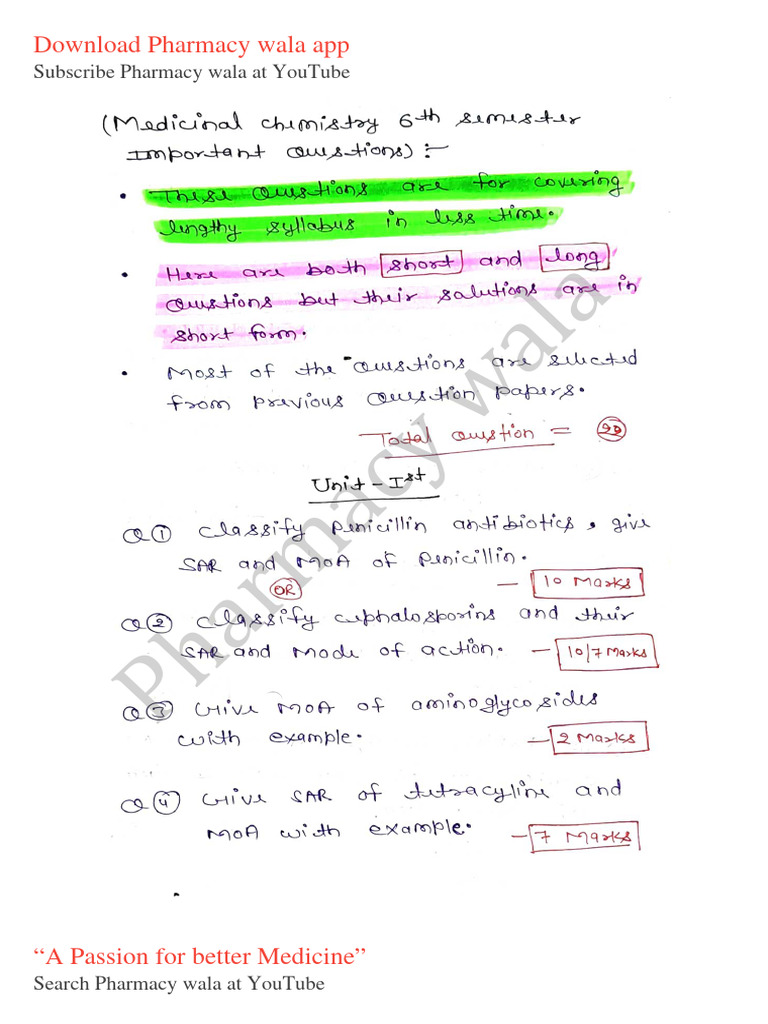 Download Pharmacy wala app
Subscribe Pharmacy wala at YouTube
(Medicinal chemistry 6th semester
Important Questions) :-
• These Questions are for covering
lengthy syllabus in less time.
• Here are both short and long
Questions but their solutions are in
short form.
• Most of the Questions are selected
from previous Question papers.
Total Question =
Unit - Ist
Q① Classify penicillin antibiotics, give
SAR and MOA of penicillin.
— 10 Marks
OR
Q② Classify cephalosporins and their
SAR and Mode of action. — 10/7 Marks
Q③ Give MOA of aminoglycosides
with example. — 2 Marks
Q④ Give SAR of tetracyline and
MOA with example. — 7 Marks
Pharmacy wala
“A Passion for better Medicine”
Search Pharmacy wala at YouTube